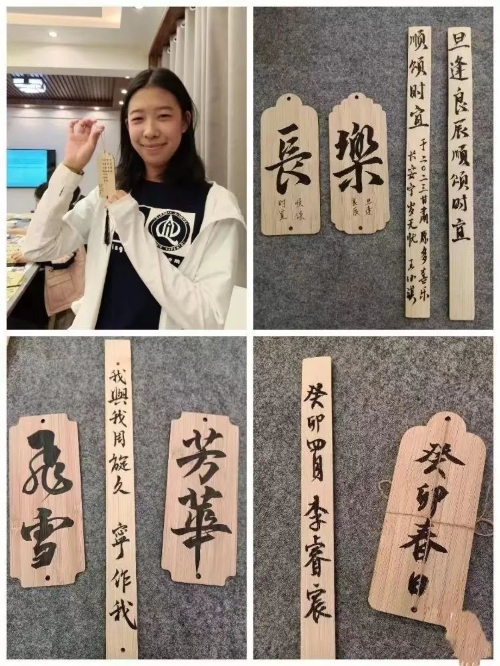 長
顺颂
时宜
樂
旦逢
良辰
顺颂时宜
于二〇二三甘肃 愿多喜乐
长安宁 岁无忧 王小
旦逢良辰顺颂时宜
飛雪
我與我周旋久 寧作我
芳華
癸卯四月 李睿宸
癸卯春日